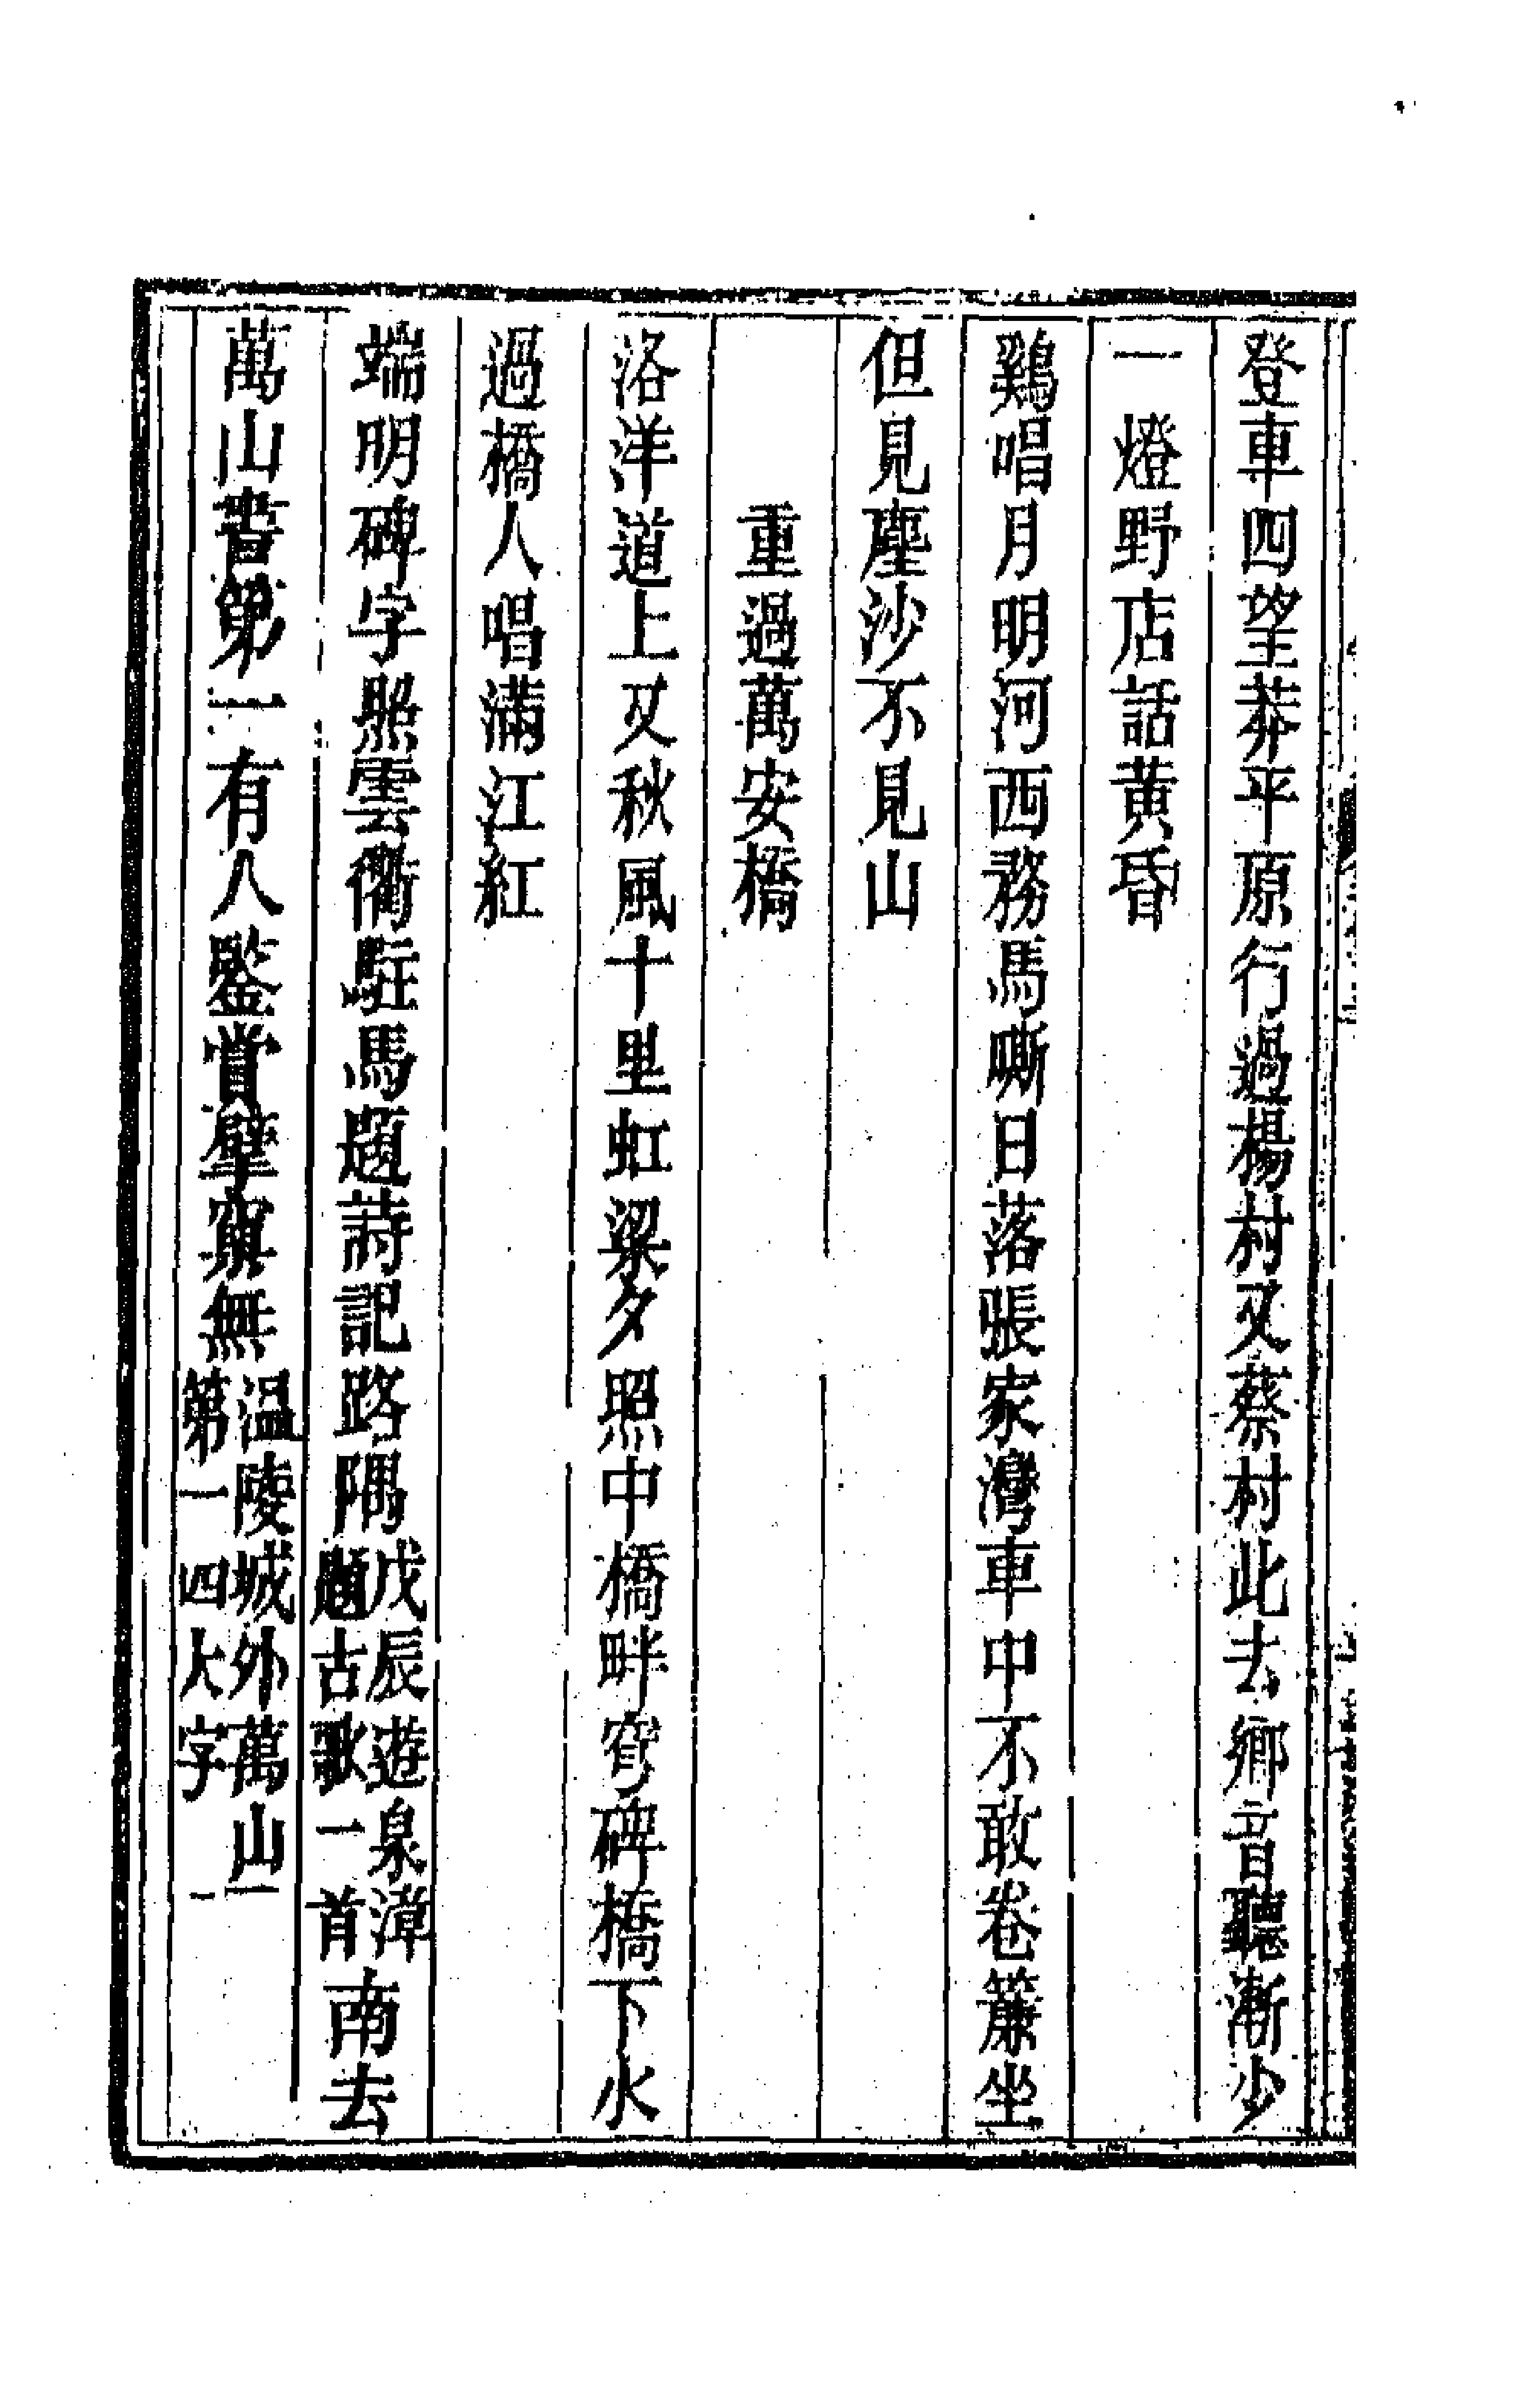 登車四望莽平原行過楊村又蔡村此去鄉音聽漸少
一燈野店話黃昏
鷄唱月明河西務馬嘶日落張家灣車中不敢卷簾坐
但見塵沙不見山
重過萬安橋
洛洋道上又秋風十里虹梁夕照中橋畔穹碑橋下水
過橋人唱滿江紅
端明碑字照雲衢駐馬題詩記路隅戊辰遊泉漳題古歌一首南去
萬山書第一有人鑒賞擘窠無温陵城外萬山一第一四大字